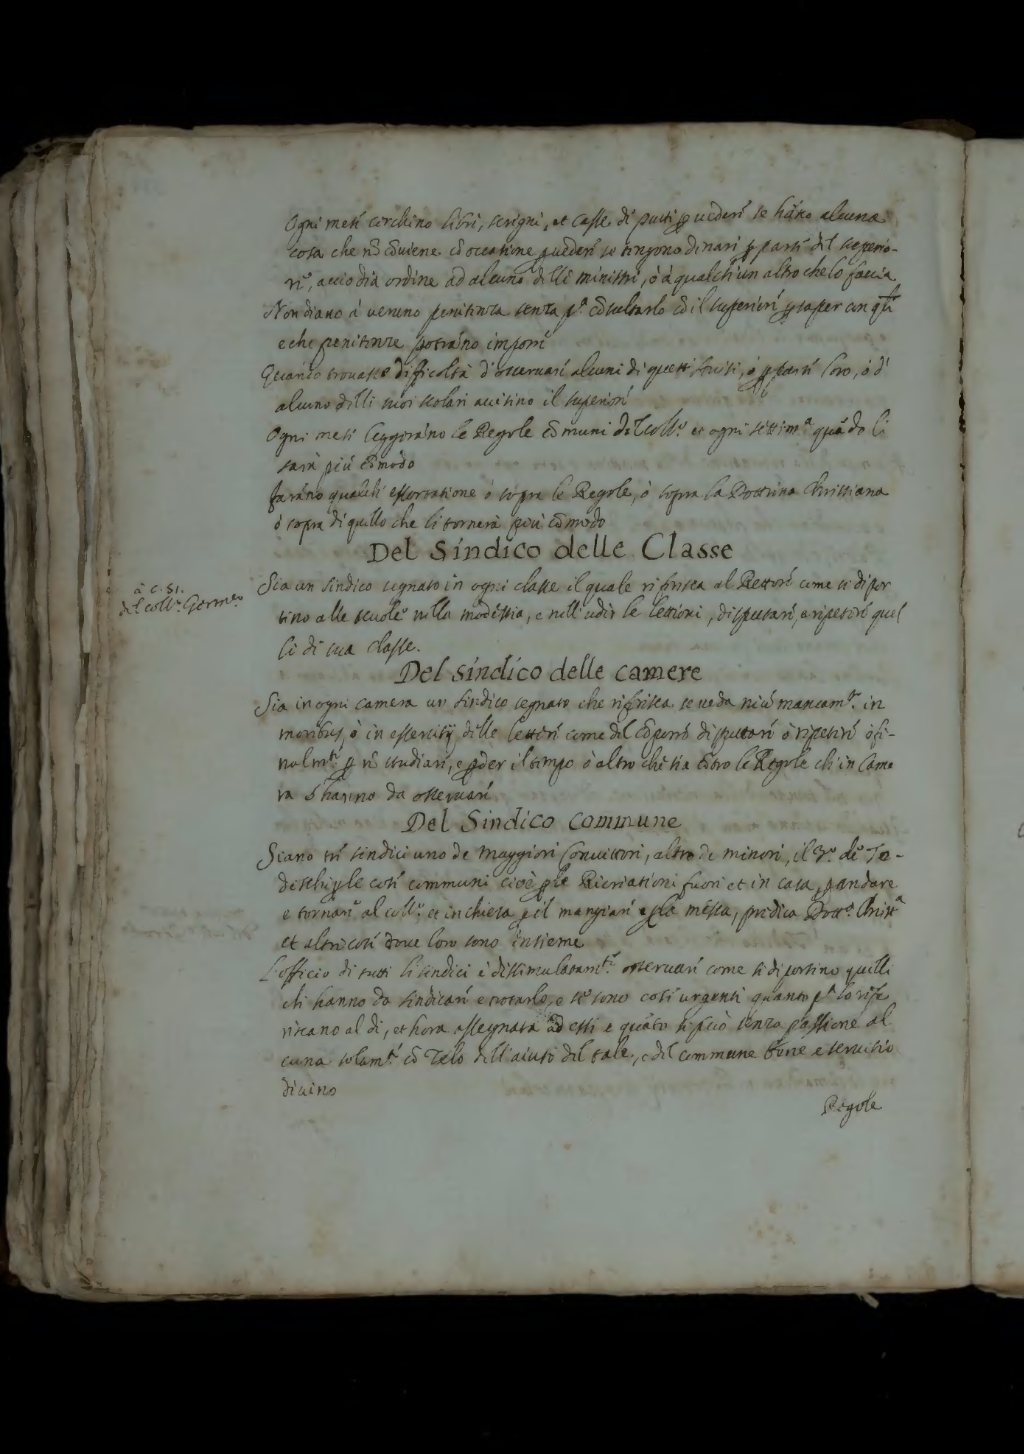 Ogni mese cerchino libri, scrigni, et casse di putti ꝑ uedere se hãno alcuna
cosa che nõ cõuiene cõ occasione ꝑ uedere se tengono denari ꝑ parte del superio-
re, accio dia ordine ad alcuno delli ministri, ò à qualch'un altro che lo faccia
Non diano à ueruno penitenza senza pª cõsultarlo cõ il superiore ꝑ saper con qˡⁱ
e che penitenze potrãno imporre
Quando trouasse dificoltà d'osseruare alcuni di questi auisi, ò ꝑ parte loro, ò d'
alcuno delli suoi scolari auisino il superiore
Ogni mese leggerãno le Regole cõmuni del collº et ogni settimª quãdo li
sarà più cõmodo
farãno qualche essortatione ò sopra le Regole, ò sopra la Dottrina Christiana
ò sopra di quello che li tornerà più cõmodo
Del Sindico delle Classe
à c. 51.
del collº Germcº
Sia un sindico segnato in ogni classe il quale riferisca al Rettore come si dipor
tino alle scuole nella modestia, e nell'udir le lettioni, disputare, e ripetere quel
li di sua classe.
Del sindico delle camere
Sia in ogni camera un sindico segnato che riferisca se ueda niũ mancamtº in
moribus, ò in essercitij delle lettere come del cõporre disputare ò ripetere ò fi-
nalmte ꝑ nõ studiare, e ꝑder il tempo ò altro che sia cõtro le Regole che in Came
ra s'hanno da osseruare
Del Sindico commune
Siano tre sindici uno de maggiori Conuittori, altro de minori, il 3º de Te-
deschi ꝑ le cose communi cioè ꝑ le Ricreationi fuori et in casa, ꝑ andare
e tornare al collº, et in chiesa ꝑ il mangiare e ꝑ la messa, predica Dottª Christª
et altre cose doue loro sono insieme
L'officio di tutti li sindici è dissimulatamte osseruare come si diportino quelli
che hanno da sindicare e notarle, e se sono cose urgenti quanto pª lo rife
riscano al di, et hora assegnata ad essi e quãto si può senza passione al
cuna solamte cõ Zelo dell'aiuto del tale, e del commune bene e seruitio
diuino
Regole